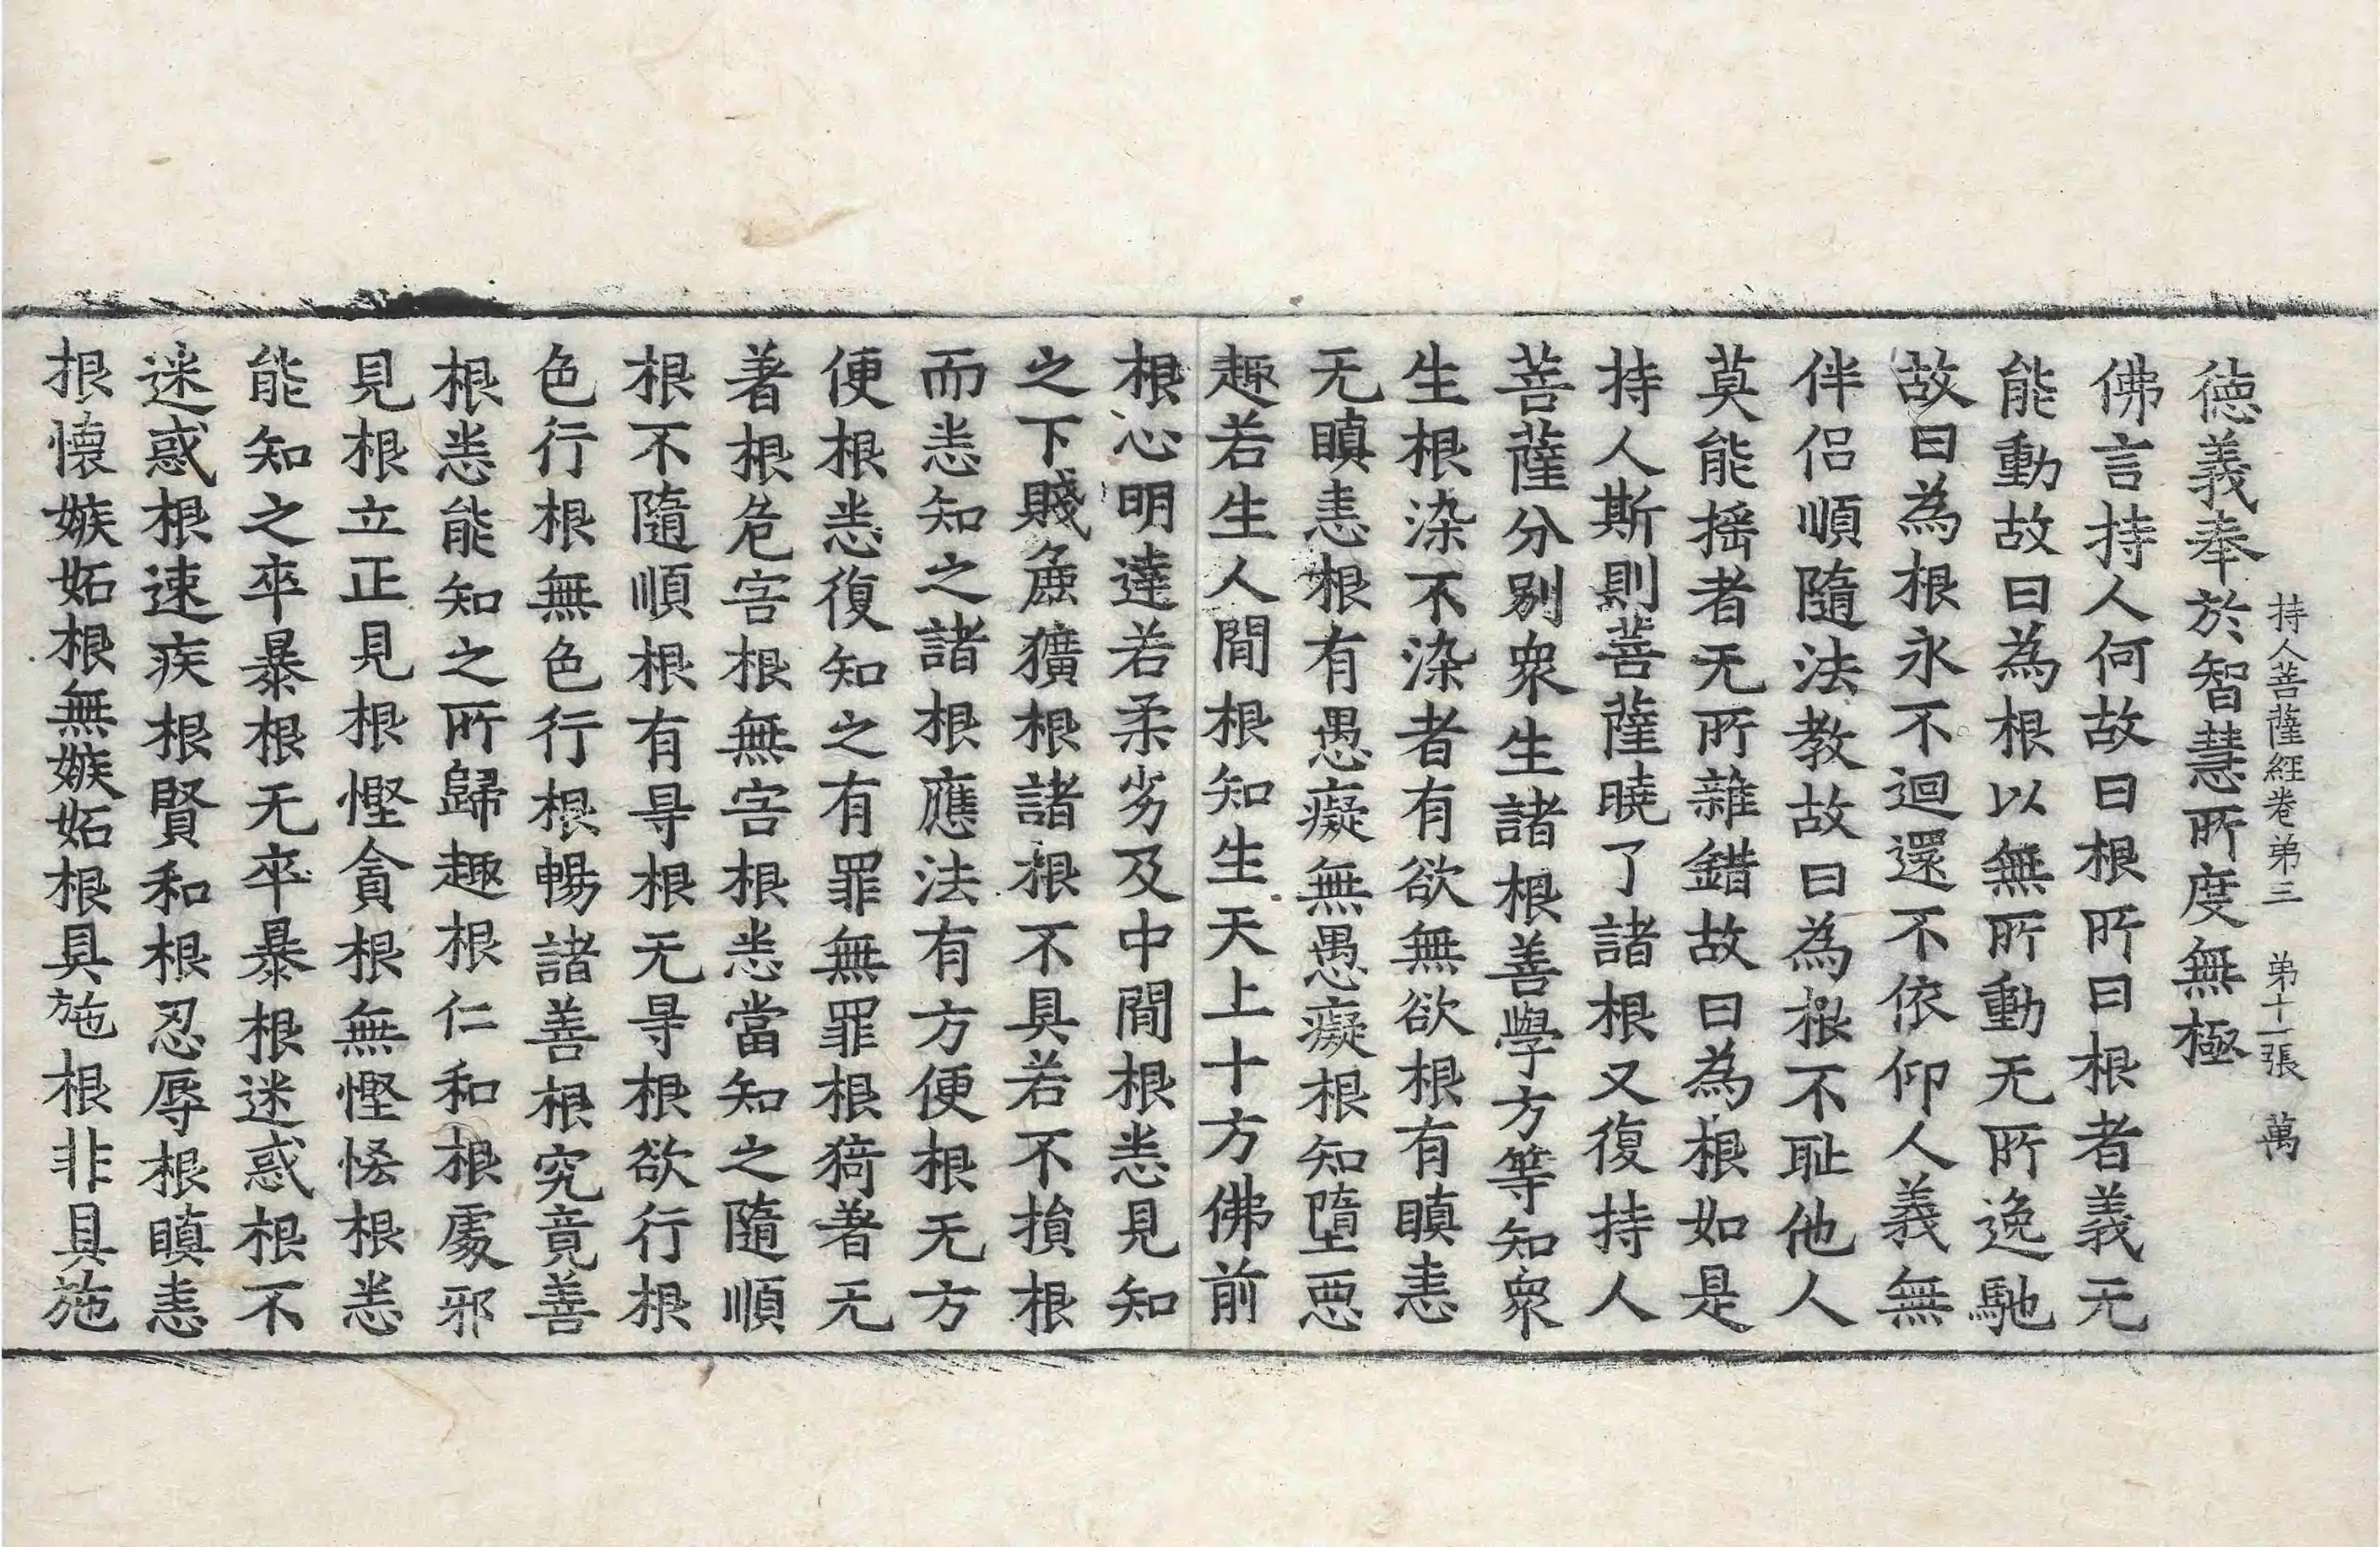 持人菩薩經卷第三 第十一張 萬
德義奉於智慧所度無極
佛言持人何故曰根所曰根者義无
能動故曰為根以無所動无所逸馳
故曰為根永不迴還不依仰人義無
伴侶順隨法教故曰為根不耻他人
莫能揺者无所雜錯故曰為根如是
持人斯則菩薩曉了諸根又復持人
菩薩分別衆生諸根善學方等知衆
生根染不染者有欲無欲根有瞋恚
无瞋恚根有愚癡無愚癡根知墮惡
趣若生人間根知生天上十方佛前
根心明達若柔劣及中間根悉見知
之下賤麁獷根諸根不具若不損根
而悉知之諸根應法有方便根无方
便根悉復知之有罪無罪根猗著无
著根危害根無害根悉當知之隨順
根不隨順根有㝵根无㝵根欲行根
色行根無色行根暢諸善根究竟善
根悉能知之所歸趣根仁和根處邪
見根立正見根慳貪根無慳悋根悉
能知之卒暴根无卒暴根迷惑根不
迷惑根速疾根賢和根忍辱根瞋恚
根懷嫉妬根無嫉妬根具施根非具施